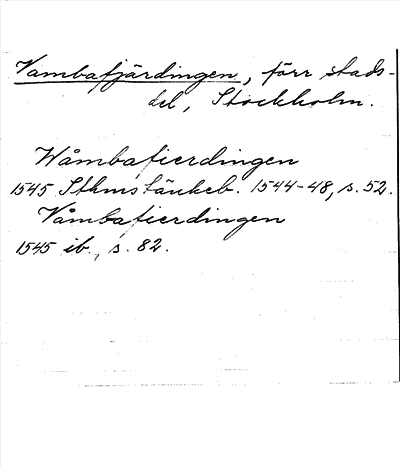 Vambafjärdingen, förr stads-
del, Stockholm.
Wåmbafierdingen
1545 Sthms tänkeb. 1544-48, s. 52.
Våmbafierdingen
1545 ib., s. 82.